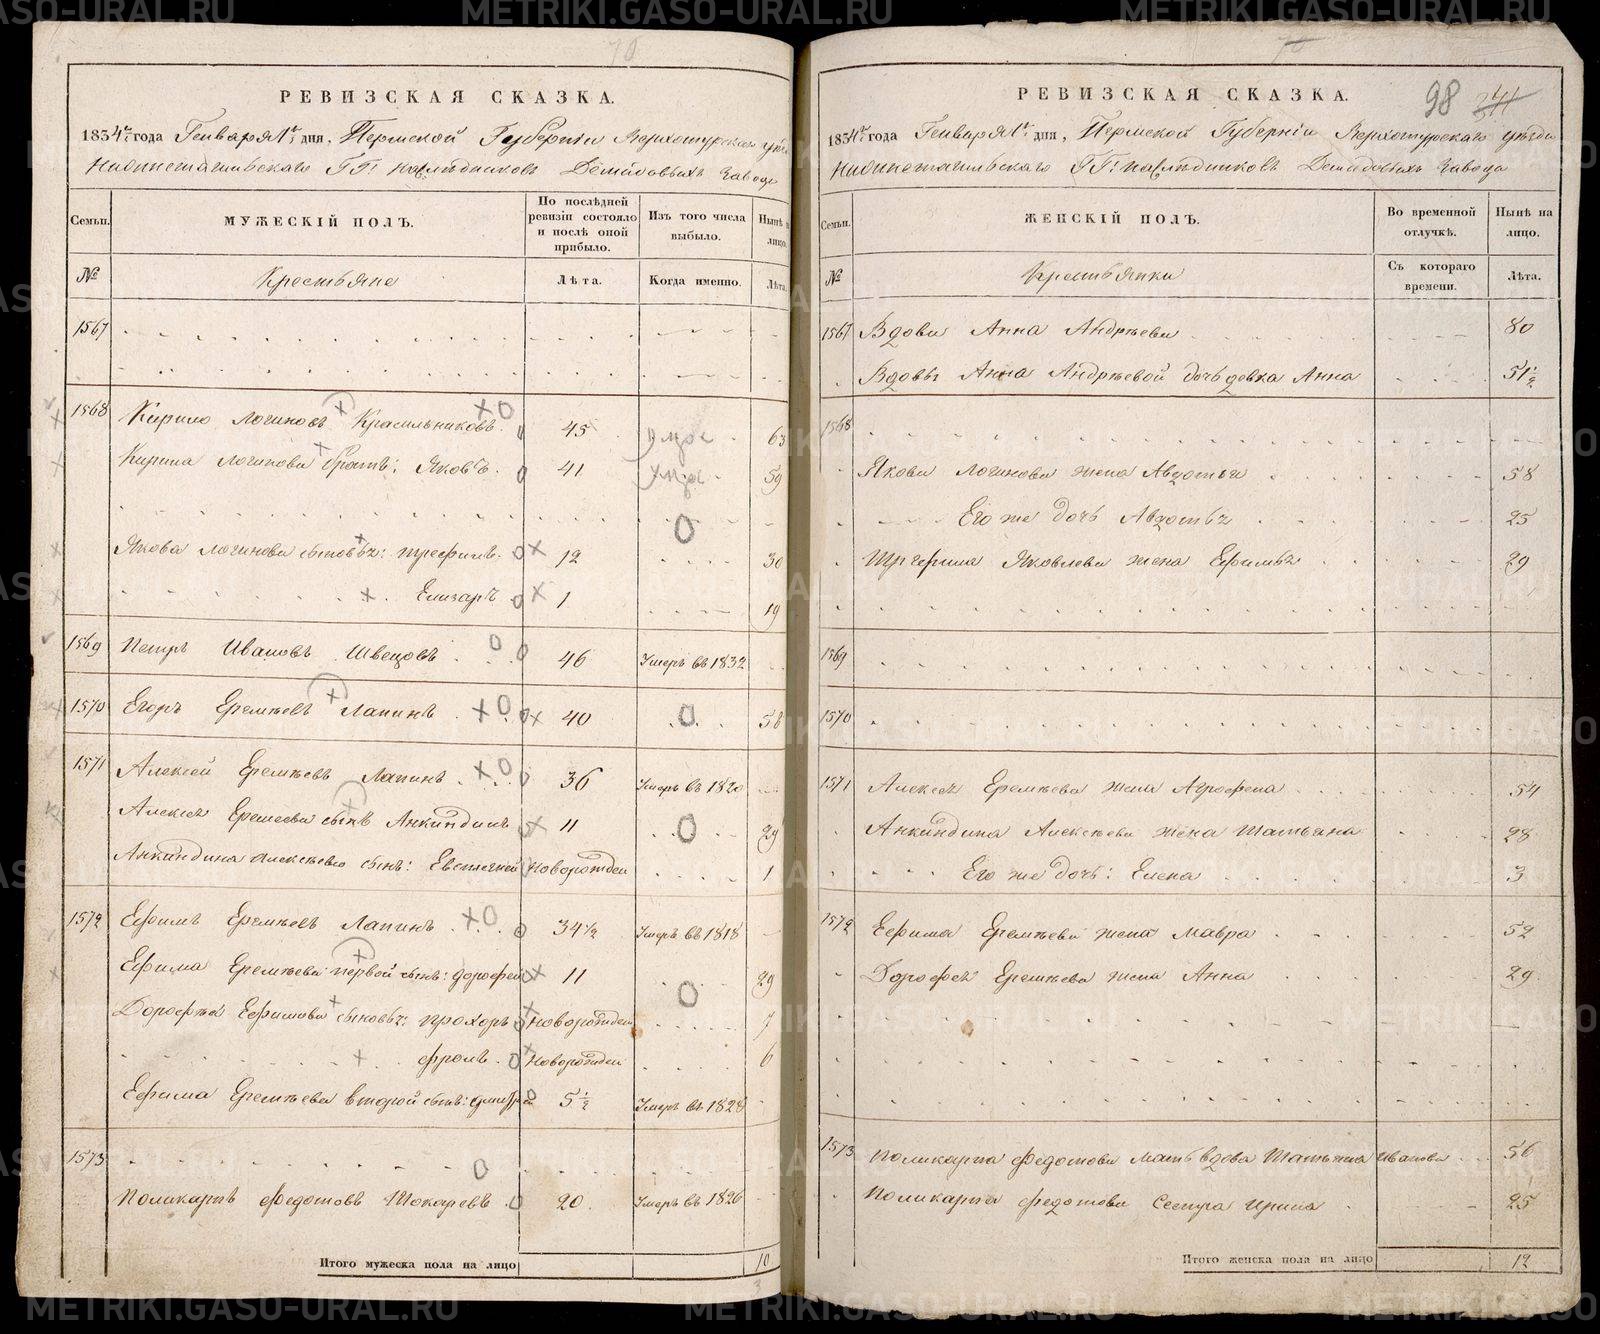 70
РЕВИЗСКАЯ СКАЗКА.
1834го года Генваря 1го дня, Пермской Губерніи Верхотурскаго уѣзда
Нижнетагильскаго ГГ: наслѣдниковъ Демидовыхъ Завода
Семьи.
МУЖЕСКІЙ ПОЛЪ.
По послѣдней ревизіи состояло и послѣ оной прибыло.
Изъ того числа выбыло.
Нынѣ на лицо.
№
Крестьяне
Лѣта.
Когда именно.
Лѣта.
1567
1568 Кирило Логиновъ Красильниковъ 45 умре 63
Кирила Логинова братъ: Яковъ 41 умре 59
Якова Логинова сыновья: Трефилъ 12 30
Елизаръ 1 19
1569 Петръ Ивановъ Швецовъ 46 Умеръ въ 1832
1570 Егоръ Еремѣевъ Лапинъ 40 58
1571 Алексѣй Еремѣевъ Лапинъ 36 Умеръ въ 1820
Алексея Еремеева сынъ Анкиндинъ 11 29
Анкиндина Алексѣева сынъ: Евстигней новорожден 1
1572 Ефимъ Еремѣевъ Лапинъ 34½ Умеръ въ 1818
Ефима Еремѣева первой сынъ: Дорофей 11 29
Дорофѣя Ефимова сыновья: Прохоръ новорожден 7
Фролъ новорожден 6
Ефима Еремѣева второй сынъ: Дмитрей 5½ Умеръ въ 1828
1573
Поликарпъ Федотовъ Токаревъ 20 Умеръ въ 1826
Итого мужеска пола на лицо 10
98
РЕВИЗСКАЯ СКАЗКА.
1834го года Генваря 1го дня, Пермской Губерніи Верхотурскаго уѣзда
Нижнетагильскаго ГГ: наслѣдниковъ Демидовыхъ Завода
Семьи.
ЖЕНСКІЙ ПОЛЪ.
Во временной отлучкѣ.
Нынѣ на лицо.
№
Крестьянки
Съ котораго времени.
Лѣта.
1567 Вдова Анна Андрѣева 80
Вдовы Анны Андрѣевой дочь девка Анна 51½
1568
Якова Логинова жена Авдотья 58
Его же дочь Авдотья 25
Трефила Яковлева жена Ефимья 29
1569
1570
1571 Алексея Еремѣева жена Агрофена 54
Анкиндина Алексѣева жена Татьяна 28
Его же дочь: Елена 3
1572 Ефима Еремѣева жена Мавра 52
Дорофея Еремѣева жена Анна 29
1573 Поликарпа Федотова мать вдова Татьяна Иванова 56
Поликарпа Федотова сестра Ирина 25
Итого женска пола на лицо 12
METRIKI.GASO-URAL.RU